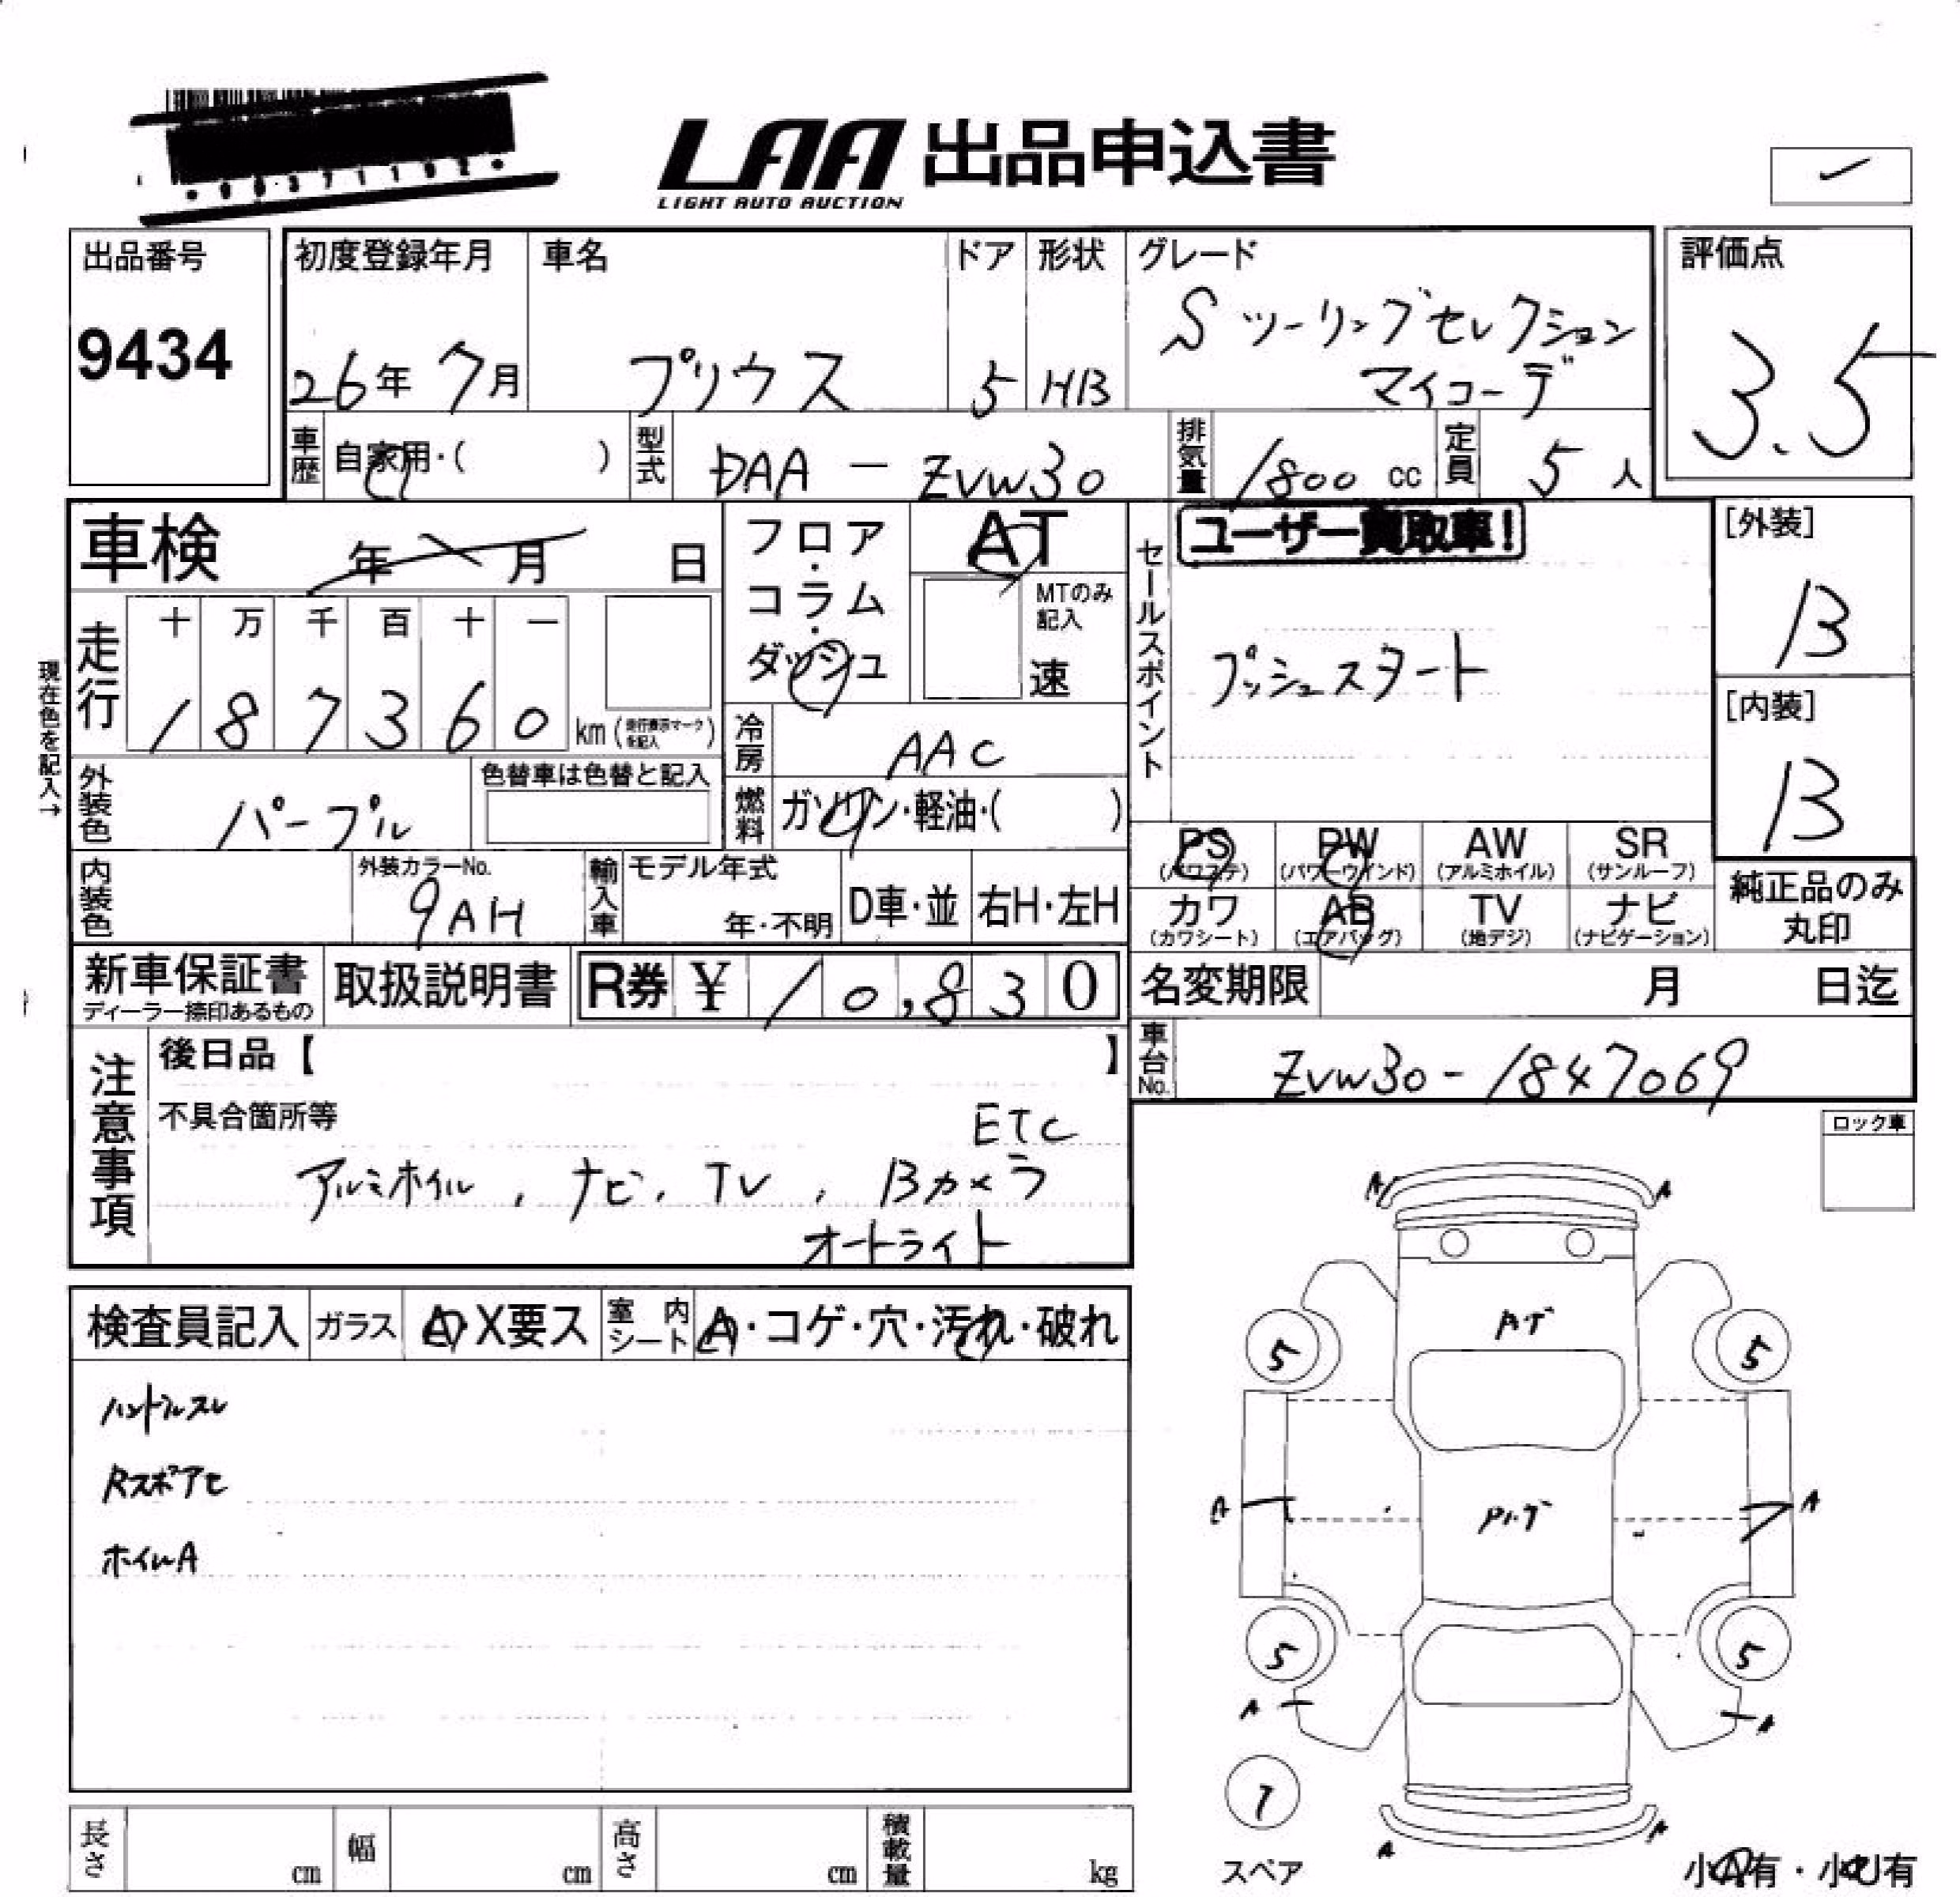 LAA 出品申込書
LIGHT AUTO AUCTION
出品番号
9434
初度登録年月
26年 7月
車名
プリウス
ドア
5
形状
HB
グレード
S ツーリングセレクション
マイコーデ
評価点
3.5
車歴
自家用・( )
型式
DAA - ZVW30
排気量
1800 cc
定員
5 人
車検
年 月 日
フロア・コラム・ダッシュ
AT
MTのみ
記入
速
セールスポイント
ユーザー買取車!
プッシュスタート
[外装]
B
[内装]
B
現在色を記入→
走行
十 万 千 百 十 一
1 8 7 3 6 0 km (走行表示マークを記入)
冷房
AAC
外装色
パープル
色替車は色替と記入
燃料
ガソリン・軽油・( )
PS
(パワステ)
PW
(パワーウインド)
AW
(アルミホイル)
SR
(サンルーフ)
内装色
外装カラーNo.
9AH
輸入車
モデル年式
年・不明
D車・並
右H・左H
カワ
(カワシート)
AB
(エアバッグ)
TV
(地デジ)
ナビ
(ナビゲーション)
純正品のみ
丸印
新車保証書
ディーラー捺印あるもの
取扱説明書
R券 ¥ 10,830
名変期限 月 日迄
車台No.
ZVW30-1847069
注意事項
後日品【 】
不具合箇所等
ETC
アルミホイル, ナビ, TV, Bカメラ
オートライト
ロック車
検査員記入
ガラス
A・X要ス
室内シート
A・コゲ・穴・汚れ・破れ
ハンドルスレ
ホイルA
A A
5 5
A A
5 5
A A
スペア
A A
小A有・小U有
長さ cm
幅 cm
高さ cm
積載量 kg